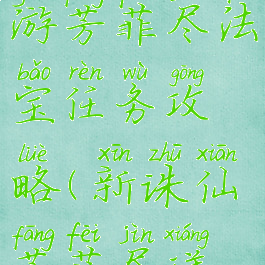 游芳菲尽法
bǎo rèn wù gōng
宝任务攻
lüè xīn zhū xiān
略(新诛仙
fāng fēi jìn xiáng
芳菲尽详